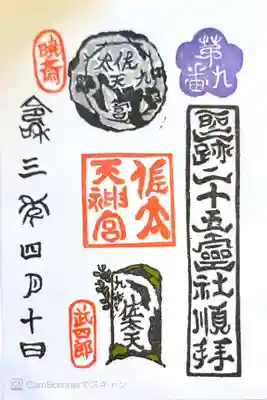 第九番
聖跡二十五靈社順拝
佐太天宮
佐太
天神宮
佐太天
武四郎
暁斎
令和三年四月十日
CamScannerでスキャン